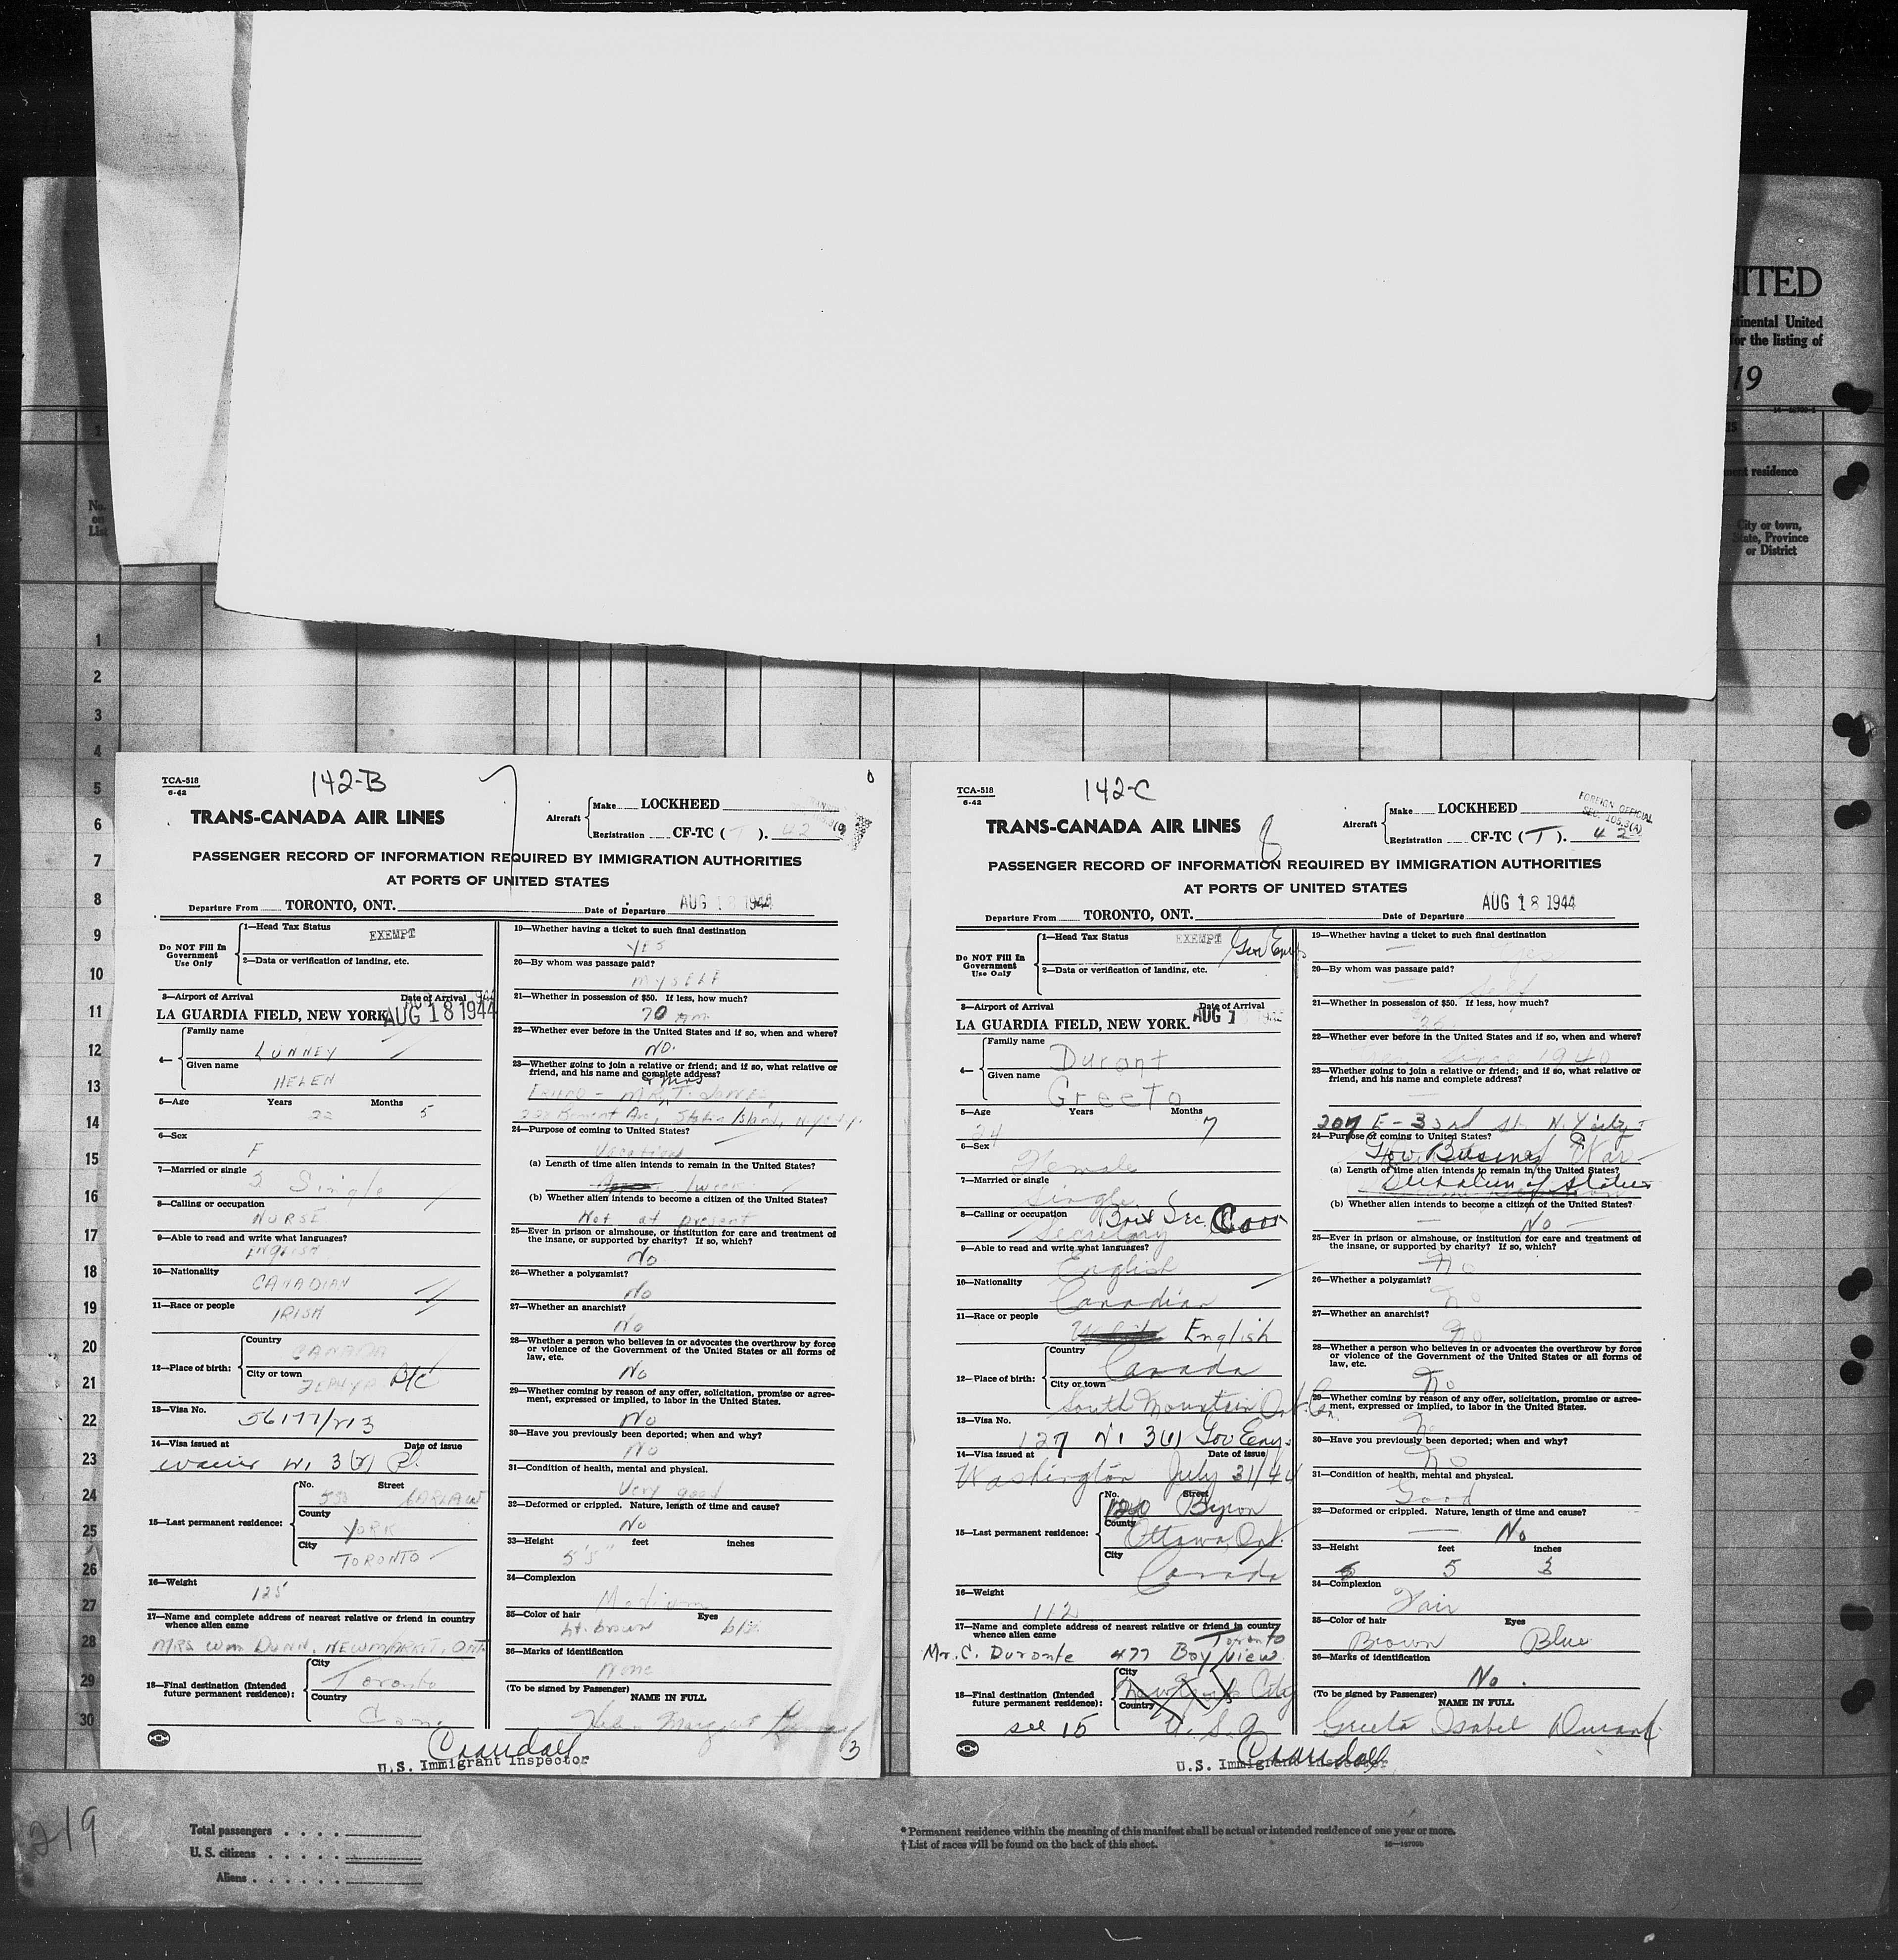 NITED
tinental United
for the listing of
19
ment residence
City or town,
State, Province
or District
1
No.
on
List
1
2
3
4
5
6
7
8
9
10
11
12
13
14
15
16
17
18
19
20
21
22
23
24
25
26
27
28
29
30
TCA-518
6-42
142-B
TRANS-CANADA AIR LINES
Aircraft
Make LOCKHEED
Registration CF-TC ( T ). 42
PASSENGER RECORD OF INFORMATION REQUIRED BY IMMIGRATION AUTHORITIES
AT PORTS OF UNITED STATES
Departure From TORONTO, ONT. Date of Departure AUG 18 1944
Do NOT Fill In
Government
Use Only
1—Head Tax Status EXEMPT
2—Data or verification of landing, etc.
3—Airport of Arrival Date of Arrival
LA GUARDIA FIELD, NEW YORK. AUG 18 1944
4—
Family name
LUNNEY
Given name
HELEN
5—Age Years Months
22 5
6—Sex
F
7—Married or single
Single
8—Calling or occupation
NURSE
9—Able to read and write what languages?
ENGLISH
10—Nationality
CANADIAN
11—Race or people
IRISH
12—Place of birth:
Country
CANADA
City or town
ZEPHYR B/C
13—Visa No.
56177/273
14—Visa issued at Date of issue
waiver
15—Last permanent residence:
No. Street
CARLAW
County
YORK
City
TORONTO
16—Weight
125
17—Name and complete address of nearest relative or friend in country
whence alien came
MRS WM DUNN, NEWMARKET, ONT.
18—Final destination (Intended
future permanent residence):
City
Toronto
Country
Can.
19—Whether having a ticket to such final destination
YES
20—By whom was passage paid?
MYSELF
21—Whether in possession of $50. If less, how much?
70
22—Whether ever before in the United States and if so, when and where?
NO.
23—Whether going to join a relative or friend; and if so, what relative or
friend, and his name and complete address?
& Mrs
Staten Island, N.Y.
24—Purpose of coming to United States?
Vacation
(a) Length of time alien intends to remain in the United States?
1 week
(b) Whether alien intends to become a citizen of the United States?
Not at present
25—Ever in prison or almshouse, or institution for care and treatment of
the insane, or supported by charity? If so, which?
No
26—Whether a polygamist?
No
27—Whether an anarchist?
No
28—Whether a person who believes in or advocates the overthrow by force
or violence of the Government of the United States or all forms of
law, etc.
No
29—Whether coming by reason of any offer, solicitation, promise or agree-
ment, expressed or implied, to labor in the United States.
No
30—Have you previously been deported; when and why?
No
31—Condition of health, mental and physical.
Very good
32—Deformed or crippled. Nature, length of time and cause?
No
33—Height feet inches
5'5"
34—Complexion
Medium
35—Color of hair Eyes
Lt. brown
36—Marks of identification
None
(To be signed by Passenger) NAME IN FULL
Helen Margaret
Crandall
U.S. Immigrant Inspector
3
TCA-518
6-42
142-C
8
TRANS-CANADA AIR LINES
Aircraft
Make LOCKHEED
Registration CF-TC ( T ). 42
FOREIGN OFFICIAL
SEC. 105.3(A)
PASSENGER RECORD OF INFORMATION REQUIRED BY IMMIGRATION AUTHORITIES
AT PORTS OF UNITED STATES
Departure From TORONTO, ONT. Date of Departure AUG 18 1944
Do NOT Fill In
Government
Use Only
1—Head Tax Status EXEMPT Gov Emp
2—Data or verification of landing, etc.
3—Airport of Arrival Date of Arrival
LA GUARDIA FIELD, NEW YORK. AUG
4—
Family name
Durant
Given name
Greeta
5—Age Years Months
24 7
6—Sex
Female
7—Married or single
Single
8—Calling or occupation
Secretary
9—Able to read and write what languages?
English
10—Nationality
Canadian
11—Race or people
English
12—Place of birth:
Country
Canada
City or town
South Mountain Ont. Can.
13—Visa No.
127
14—Visa issued at Date of issue
Washington July 31/44
15—Last permanent residence:
No. Street
120 Byron
County
Ottawa, Ont.
City
Canada
16—Weight
112
17—Name and complete address of nearest relative or friend in country
whence alien came
Toronto
Mr. C. Durante 477 Bayview
18—Final destination (Intended
future permanent residence):
see 15
City
New York City
Country
U. S. A
19—Whether having a ticket to such final destination
Yes
20—By whom was passage paid?
Self
21—Whether in possession of $50. If less, how much?
22—Whether ever before in the United States and if so, when and where?
Yes since 1940
23—Whether going to join a relative or friend; and if so, what relative or
friend, and his name and complete address?
207 E-33rd St. N.Y. City
24—Purpose of coming to United States?
Gov. Business War
(a) Length of time alien intends to remain in the United States?
Duration of status
(b) Whether alien intends to become a citizen of the United States?
No
25—Ever in prison or almshouse, or institution for care and treatment of
the insane, or supported by charity? If so, which?
No
26—Whether a polygamist?
No
27—Whether an anarchist?
No
28—Whether a person who believes in or advocates the overthrow by force
or violence of the Government of the United States or all forms of
law, etc.
No
29—Whether coming by reason of any offer, solicitation, promise or agree-
ment, expressed or implied, to labor in the United States.
No
30—Have you previously been deported; when and why?
No
31—Condition of health, mental and physical.
Good
32—Deformed or crippled. Nature, length of time and cause?
No
33—Height feet inches
5 3
34—Complexion
Fair
35—Color of hair Eyes
Brown Blue
36—Marks of identification
No.
(To be signed by Passenger) NAME IN FULL
Greeta Isabel Durant
Crandall
U.S. Immigrant Inspector
219
Total passengers
U. S. citizens
Aliens
* Permanent residence within the meaning of this manifest shall be actual or intended residence of one year or more.
† List of races will be found on the back of this sheet.